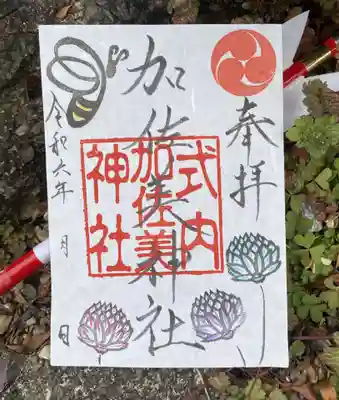 奉拝
加佐美神社
式内
加佐美
神社
令和六年 月 日